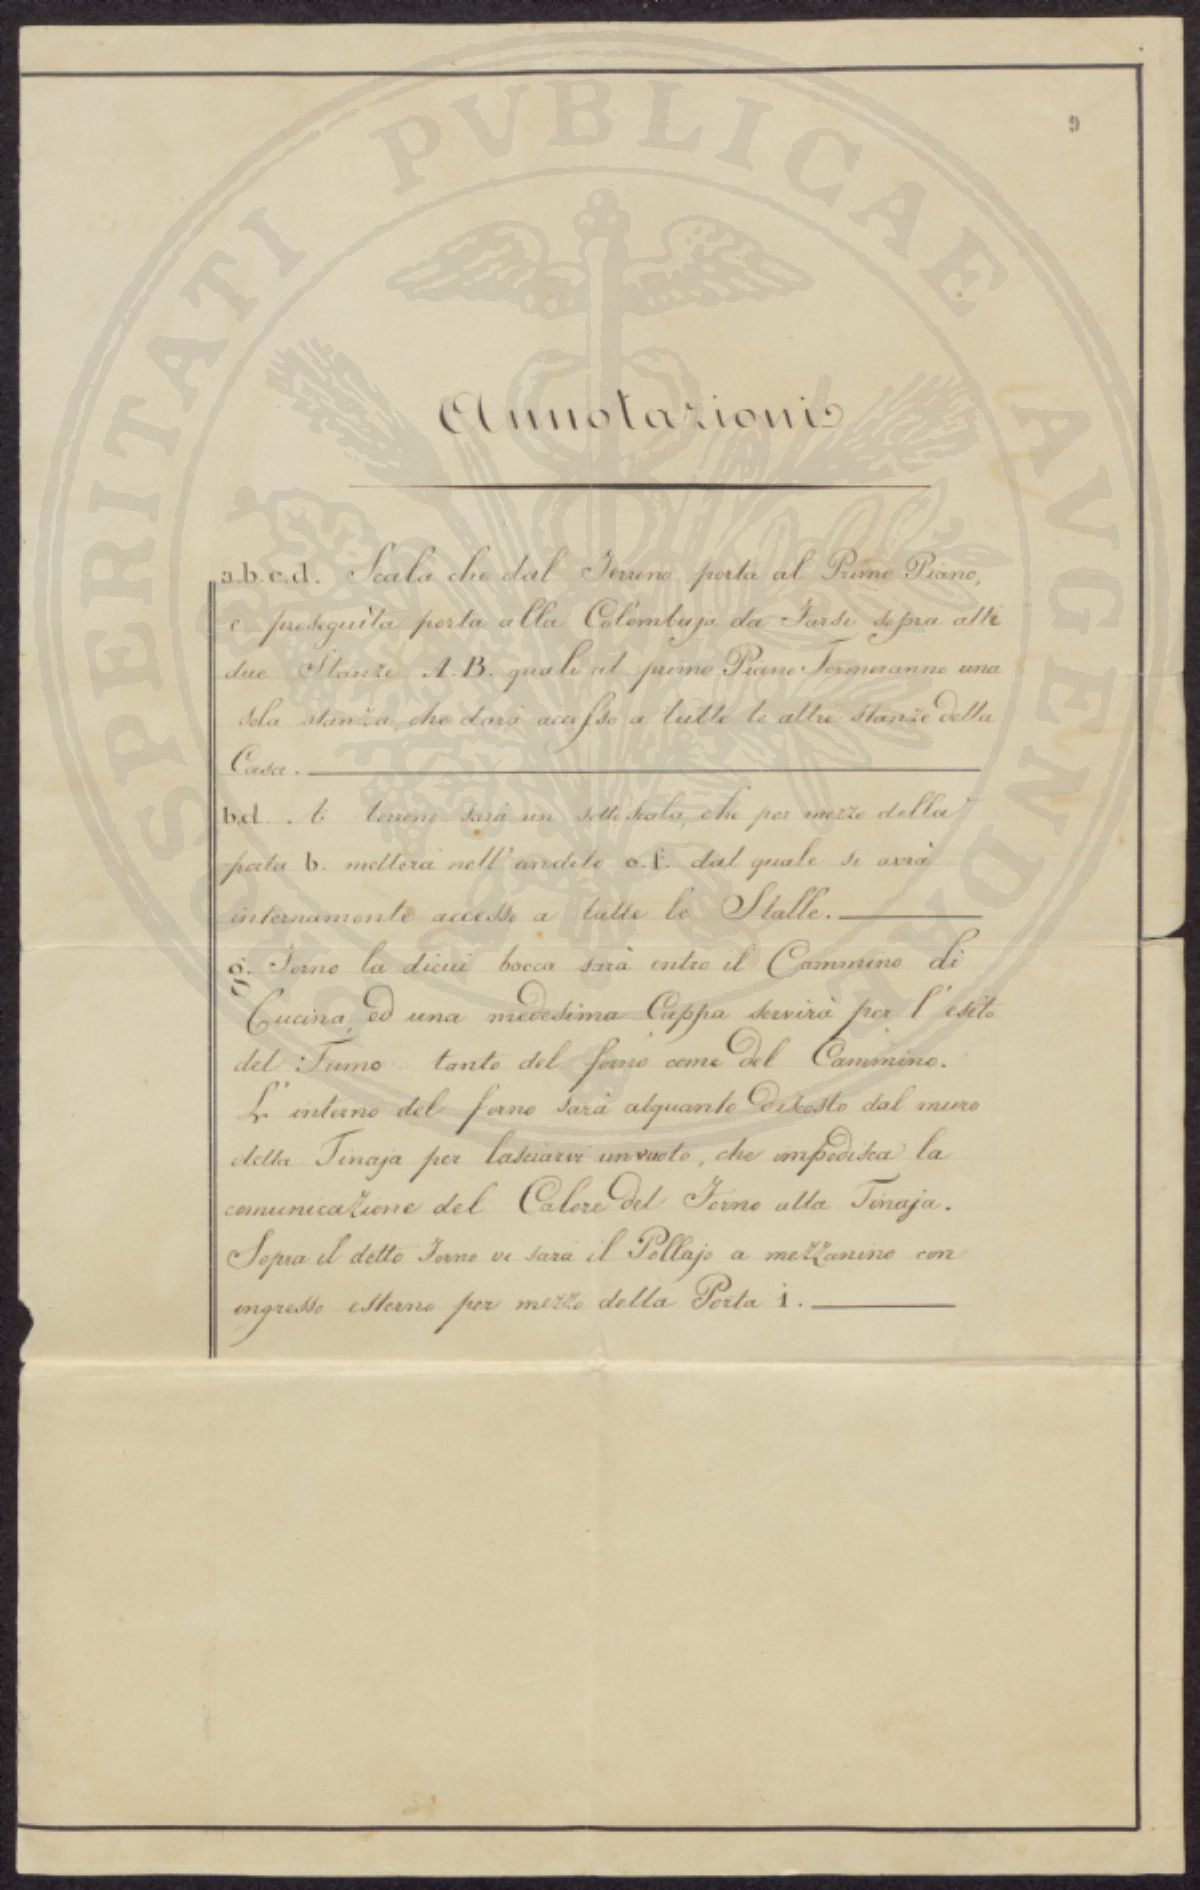 9
Annotazioni
a.b.c.d. Scala che dal Terreno porta al Primo Piano,
e proseguita porta alla Colombaja da Farsi sopra alle
due Stanze A.B. quali al primo Piano Formeranno una
sola stanza, che darà accesso a tutte le altre stanze della
Casa.
b.d. A terreno sarà un sotto scala, che per mezzo della
porta b. metterà nell'andito e.f. dal quale si avrà
internamente accesso a tutte le Stalle.
g. Forno la dicui bocca sarà entro il Cammino di
Cucina, ed una medesima Cappa servirà per l'esito
del Fumo tanto del forno come del Cammino.
L'interno del forno sarà alquanto discosto dal muro
della Tinaja per lasciarvi un vuoto, che impedisca la
comunicazione del Calore del Forno alla Tinaja.
Sopra il detto Forno vi sarà il Pollajo a mezzanino con
ingresso esterno per mezzo della Porta i.
PROSPERITATI PVBLICAE AVGENDAE